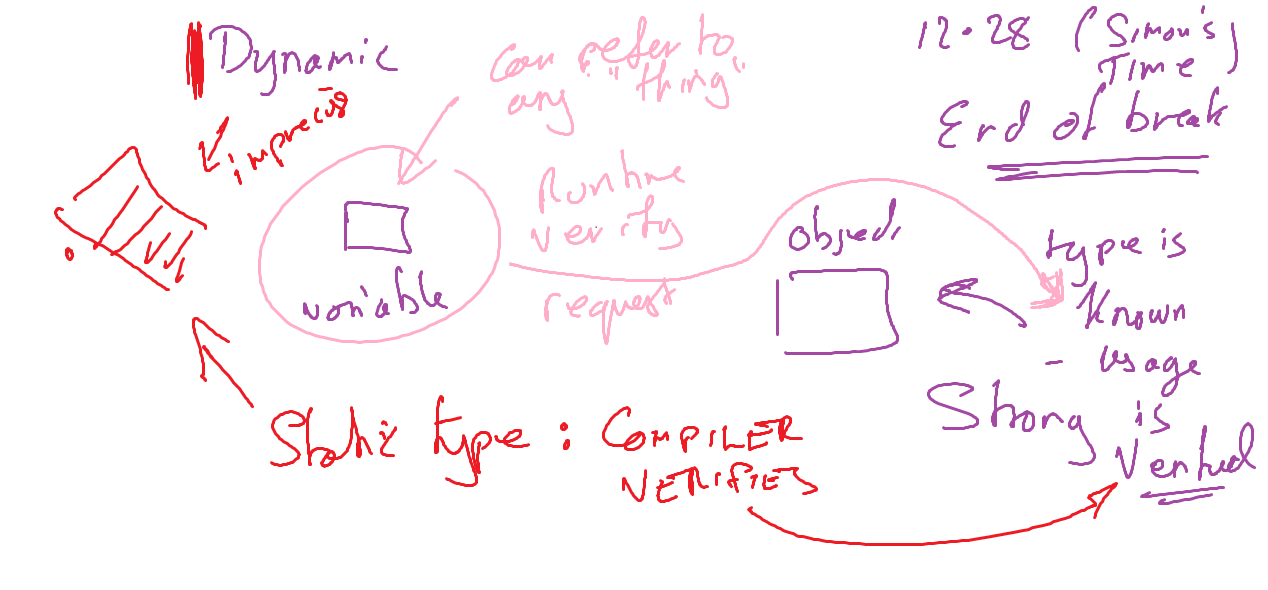 Dynamic
can refer to
any "thing"
12.28 (Simon's
Time)
End of break
Runtime
verify
request
variable
object
type is
known
- usage
is
verified
Strong
Static type : COMPILER
VERIFIES